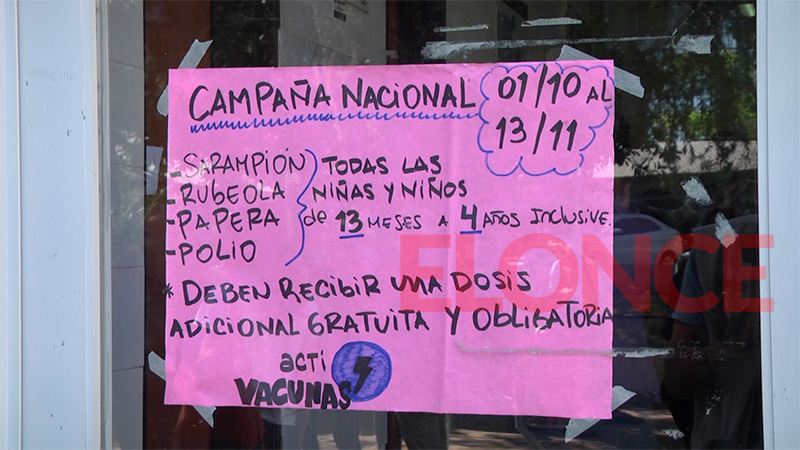 CAMPAÑA NACIONAL
01/10 AL
13/11
-SARAMPIÓN
-RUBEOLA
-PAPERA
-POLIO
TODAS LAS
NIÑAS Y NIÑOS
de 13 MESES A 4 AÑOS INCLUSIVE.
* DEBEN RECIBIR UNA DOSIS
ADICIONAL GRATUITA Y OBLIGATORIA
acti
VACUNAS
ELONCE